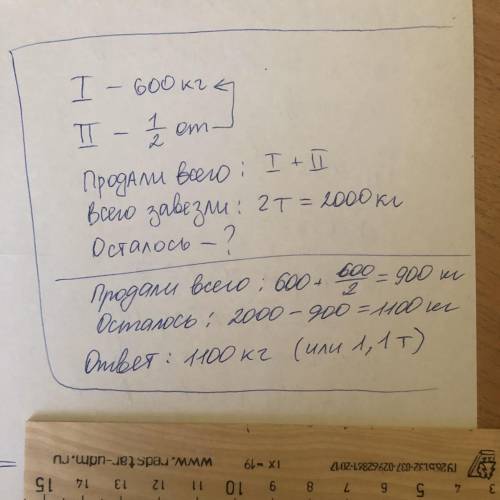 I – 600 кг
II – 1/2 от
Продали всего: I + II
Всего завезли: 2т = 2000 кг
Осталось – ?
Продали всего: 600 + 600/2 = 900 кг
Осталось: 2000 – 900 = 1100 кг
Ответ: 1100 кг (или 1,1 т)
www.redstar-udm.ru
ц = 19
15 14 13 12 11 10 9 8 7 6 5 4 3